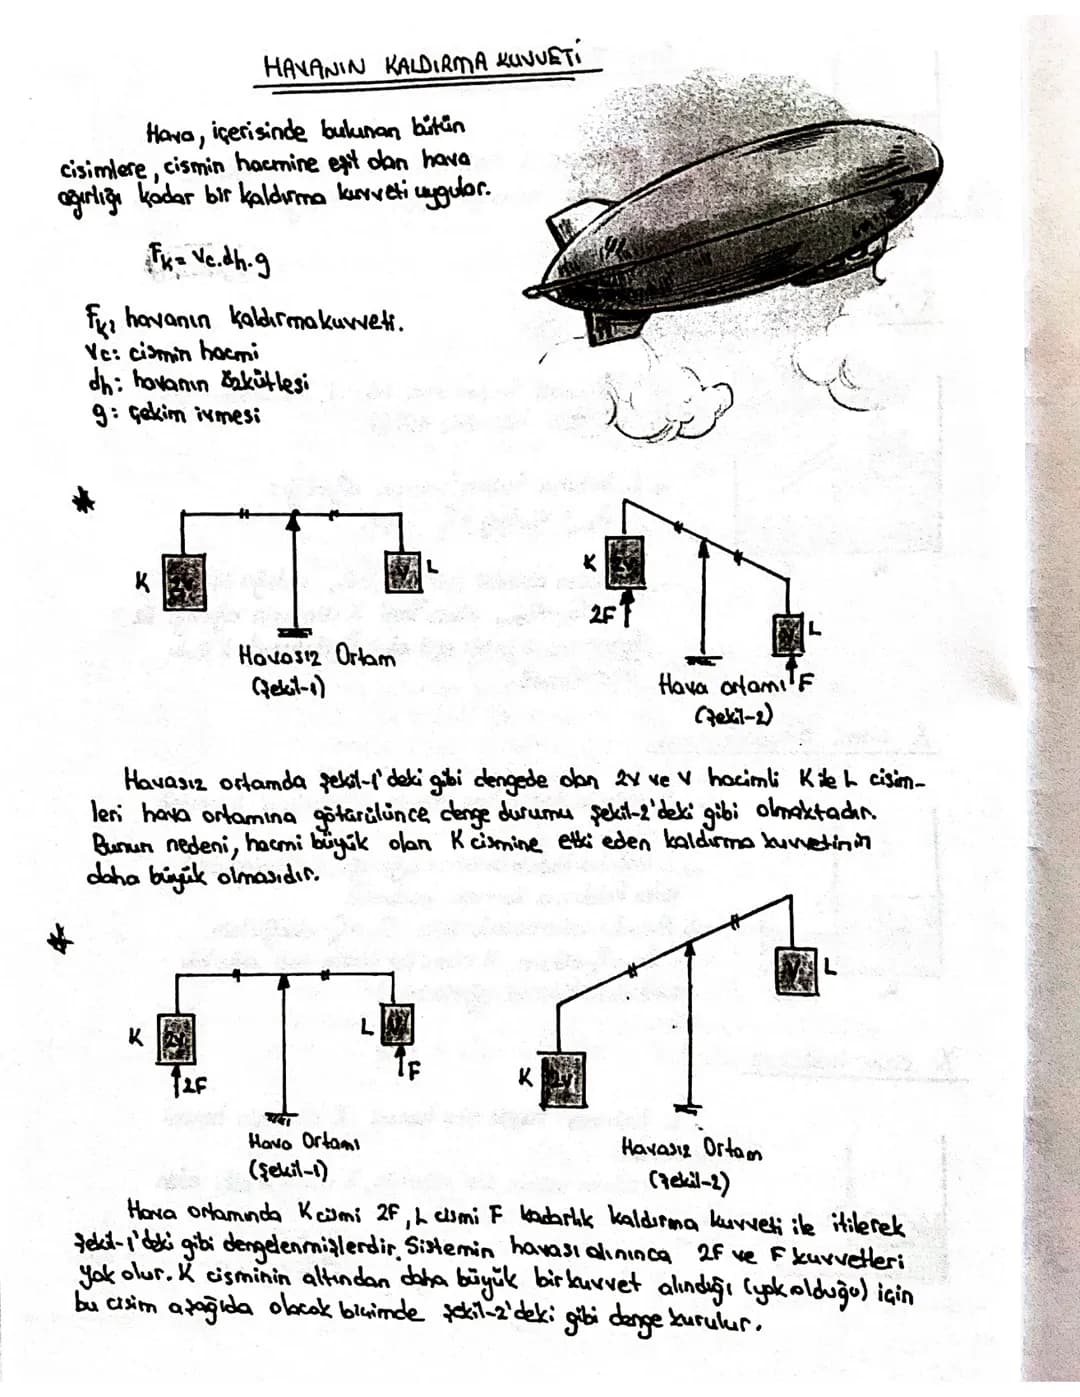 HAVANIN KALDIRMA KUVVETİ
Hava, içerisinde bulunan bütün
cisimlere, cismin hacmine eşit olan hava
ağırlığı kadar bir kaldırma kuvveti uygular.
Fk = Vc.dh.g
Fk: havanın kaldırma kuvveti.
Vc: cismin hacmi
dh: havanın özkütlesi
g: çekim ivmesi
K 2V V L
K 2V
2F
V L
F
Havasız Ortam
(Şekil-1)
Hava ortamı
(Şekil-2)
Havasız ortamda şekil-1'deki gibi dengede olan 2V ve V hacimli K ile L cisim-
leri hava ortamına götürülünce denge durumu şekil-2'deki gibi olmaktadır.
Bunun nedeni, hacmi büyük olan K cismine etki eden kaldırma kuvvetinin
daha büyük olmasıdır.
K 2V L V
2F F
V L
K 2V
Hava Ortamı
(Şekil-1)
Havasız Ortam
(Şekil-2)
Hava ortamında K cismi 2F, L cismi F kadarlık kaldırma kuvveti ile itilerek
şekil-1'deki gibi dengelenmişlerdir. Sistemin havası alınınca 2F ve F kuvvetleri
yok olur. K cisminin altından daha büyük bir kuvvet alındığı (yok olduğu) için
bu cisim aşağıda olacak biçimde şekil-2'deki gibi denge kurulur.